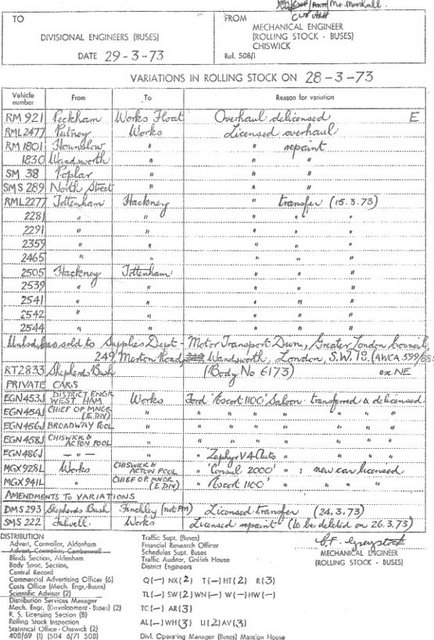 Mr. Marshall
TO
DIVISIONAL ENGINEERS (BUSES)
DATE 29-3-73
FROM
MECHANICAL ENGINEER
(ROLLING STOCK - BUSES)
CHISWICK
Ref. 508/1
VARIATIONS IN ROLLING STOCK ON 28-3-73
Vehicle number From To Reason for variation
RM 921 Peckham Works Float Overhaul delicensed E
RML2477 Putney Works Licensed overhaul
RM 1801 Hounslow " " repaint
1830 Wandsworth " " "
SM 38 Poplar " " "
SMS 289 North Street " " "
RML2277 Tottenham Hackney " transfer (15.3.73)
2281 " " " "
2291 " " " "
2359 " " " "
2465 " " " "
2505 Hackney Tottenham " "
2539 " " " "
2541 " " " "
2542 " " " "
2544 " " " "
Unlicd bus sold to Supplies Dept - Motor Transport Divn, Greater London Council,
249 Merton Road, Wandsworth, London, S.W.18. (AWCA 599/
RT2833 Shepherds Bush (Body No 6173) ex NE
PRIVATE CARS
EGN453J DISTRICT ENGR WEST HAM Works Ford 'Escort 1100' Saloon transferred & delicensed
EGN454J CHIEF OP MNGR (E.DIV) " " " " " "
EGN456J BROADWAY POOL " " " " " "
EGN458J CHISWICK & ACTON POOL " " " " " "
EGN486J — " — " " Zephyr V4 Auto " " "
MGX928L Works CHISWICK & ACTON POOL " 'Consul 2000' " : new car licensed
MGX941L " CHIEF OP MNGR (E.DIV) " 'Escort 1100' " " " "
AMENDMENTS TO VARIATIONS
DMS 293 Shepherds Bush Finchley (not PM) Licensed transfer (24.3.73)
SMS 222 Fulwell Works Licensed repaint (to be deleted on 26.3.73)
DISTRIBUTION
Advert, Controller, Aldenham
Advert, Controller, Camberwell
Blinds Section, Aldenham
Body Serv. Section,
Central Record
Commercial Advertising Officer (6)
Costs Office (Mech. Engr-Buses)
Scientific Advisor (2)
Distribution Services Manager
Mech. Engr, (Development - Buses) (2)
R. S. Licensing Section (8)
Rolling Stock Inspection
Statistical Office - Chiswick (2)
408/69 (1) 504 6/71 508
Traffic Supt. (Buses)
Financial Research Officer
Schedules Supt. Buses
Traffic Auditor, Griffith House
District Engineers
Q(-) NX(2) T(-) HT(2) R(3)
TL(-) SW(2) WN(-) W(-) HW(-)
TC(-) AR(3)
AL(-) WH(3) U(2) AV(3)
Divl. Operating Manager (Buses) Mansion House
MECHANICAL ENGINEER
(ROLLING STOCK - BUSES)